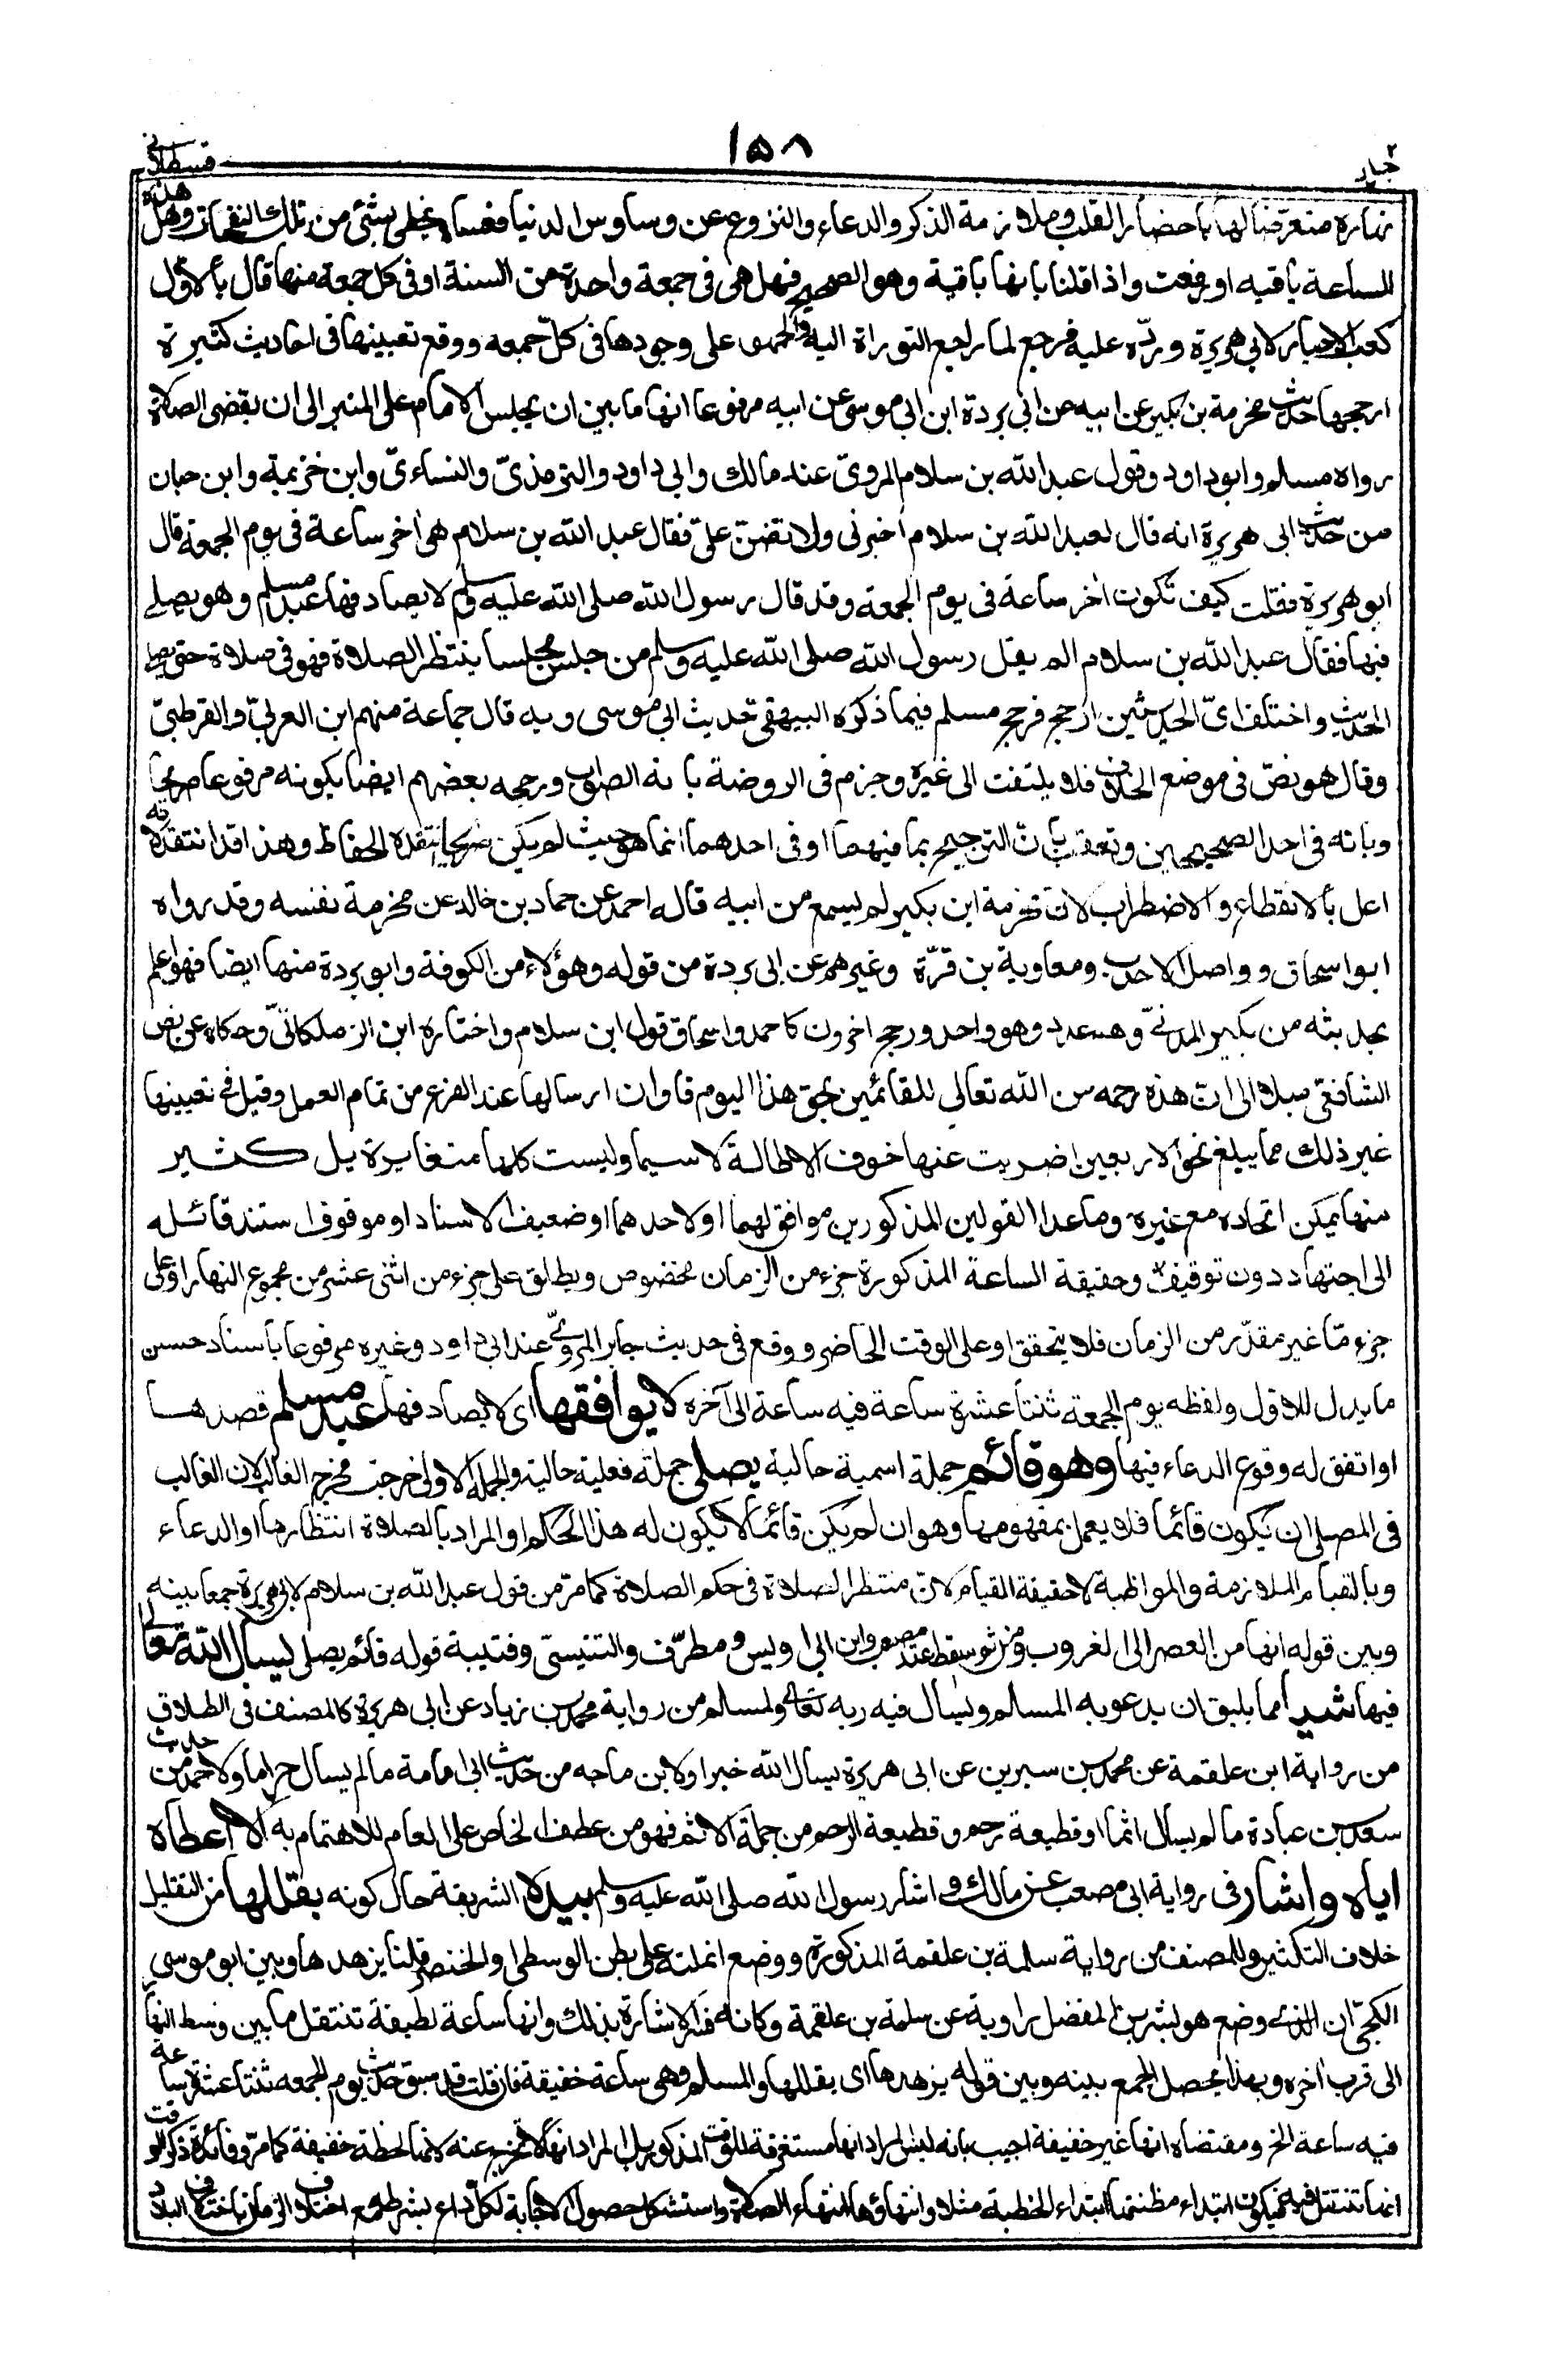 جلد ٢
١٥٨
قسطلاني
نهاره متعرّضا لها باحضار القلب وملازمة الذكر والدعاء والنزوع عن وساوس الدنيا فعساه يحظى بشئ من تلك النفحات وهل هذه
الساعة باقيه او رفعت واذا قلنا بانها باقية وهو الصحيح فهل هى فى جمعة واحدة من السنة او فى كل جمعة منها قال بالاوّل
كعب الاحبار لابى هريرة وردّه عليه فرجع لما راجع التوراة اليه والجمهور على وجودها فى كلّ جمعه ووقع تعيينها فى احاديث كثيرة
ارجحها حديث مخرمة بن بكير عن ابيه عن ابى بردة ابن ابى موسى عن ابيه مرفوعا انها ما بين ان يجلس الامام على المنبر الى ان يقضى الصلاة
رواه مسلم وابو داود وقول عبد الله بن سلام المروىّ عند مالك وابى داود والترمذىّ والنساءىّ وابن خزيمة وابن حبان
من حديث ابى هريرة انه قال لعبد الله بن سلام اخبرنى ولا تضنّ علىّ فقال عبد الله بن سلام هى اخر ساعة فى يوم الجمعة قال
ابو هريرة فقلت كيف تكون اخر ساعة فى يوم الجمعة وقد قال رسول الله صلى الله عليه وسلم لا يصادفها عبد مسلم وهو يصلى
فيها فقال عبد الله بن سلام الم يقل رسول الله صلى الله عليه وسلم من جلس مجلسا ينتظر الصلاة فهو فى صلاة حتى يصلى
الحديث واختلف اىّ الحديثين ارجح فرجح مسلم فيما ذكره البيهقى حديث ابى موسى وبه قال جماعة منهم ابن العربىّ والقرطبىّ
وقال هو نصّ فى موضع الخلاف فلا يلتفت الى غيره وجزم فى الروضة بانه الصواب ورجحه بعضهم ايضا بكونه مرفوعا صريحا
وبانه فى احد الصحيحين وتعقب بانّ الترجيح بما فيهما او فى احدهما انما هو حيث لم يكن مما انتقده الحفاظ وهذا قد انتقد لانه
اعل بالانقطاع والاضطراب لانّ مخرمة ابن بكير لم يسمع من ابيه قاله احمد عن حماد بن خالد عن مخرمة نفسه وقد رواه
ابو اسحاق وواصل الاحدب ومعاوية بن قرّة وغيرهم عن ابى بردة من قوله وهؤلاء من الكوفة وابو بردة منها ايضا فهو اعلم
بحديثه من بكير المدنىّ وهم عدد وهو واحد ورجح اخرون كاحمد واسحاق قول ابن سلام واختاره ابن الزملكانىّ وحكاه عن نص
الشافعى ميلا الى انّ هذه رحمة من الله تعالى للقائمين بحق هذا اليوم فاوان ارسالها عند الفراغ من تمام العمل وقيل فى تعيينها
غير ذلك مما يبلغ نحو الاربعين اضربت عنها خوف الاطالة لا سيما وليست كلها متغايرة بل كثير
منها يمكن اتحاده مع غيره وما عدا القولين المذكورين موافق لهما او لاحدهما او ضعيف الاسناد او موقوف استند قائله
الى اجتهاد دون توقيف وحقيقة الساعة المذكورة جزء من الزمان مخصوص ويطلق على جزء من اثنى عشر من مجموع النهار او على
جزء مّا غير مقدّر من الزمان فلا يتحقق او على الوقت الحاضر ووقع فى حديث جابر المروىّ عند ابى داود وغيره مرفوعا باسناد حسن
ما يدل للاول ولفظه يوم الجمعة ثنتا عشرة ساعة فيه ساعة الى آخره لا يوافقها اى لا يصادفها عبد مسلم قصدها
او اتفق له وقوع الدعاء فيها وهو قائم جملة اسمية حالية يصلى جملة فعلية حالية والجملة الاولى خرجت مخرج الغالب لان الغالب
فى المصلى ان يكون قائما فلا يعمل بمفهومها وهو ان لم يكن قائما لا يكون له هذا الحكم او المراد بالصلاة انتظارها او الدعاء
وبالقيام الملازمة والمواظبة لا حقيقة القيام لانّ منتظر الصلاة فى حكم الصلاة كما مرّ من قول عبد الله بن سلام لابى هريرة جمعا بينه
وبين قوله انها من العصر الى الغروب ومن ثم سقط عند مصعب وابن ابى اويس ومطرّف والتنيسىّ وقتيبة قوله قائم يصلى يسأل الله تعالى
فيها شيئا مما يليق ان يدعو به المسلم ويسأل فيه ربه تعالى ولمسلم من رواية محمد بن زياد عن ابى هريرة كالمصنف فى الطلاق
من رواية ابن علقمة عن محمد بن سيرين عن ابى هريرة يسال الله خيرا ولابن ماجه من حديث ابى امامة ما لم يسال حراما ولاحمد من حديث
سعد بن عبادة ما لم يسال اثما او قطيعة رحم وقطيعة الرحم من جملة الاثم فهو من عطف الخاص على العام للاهتمام به الا اعطاه
اياه واشار فى رواية ابى مصعب عن مالك واشار رسول الله صلى الله عليه وسلم بيده الشريفة حال كونه يقللها من التقليل
خلاف التكثير وللمصنف من رواية سلمة بن علقمة المذكورة ووضع انملته على بطن الوسطى والخنصر قلنا يزهدها وبين ابو موسى
الكجىّ ان الذى وضع هو بشر بن المفضل راويه عن سلمة بن علقمة وكانه فسر الاشارة بذلك وانها ساعة لطيفة تنتقل ما بين وسط النهار
الى قرب آخره وبهذا يحصل الجمع بينه وبين قوله يزهدها اى يقللها ولمسلم وهى ساعة خفيفة فان قلت قد سبق حديث يوم الجمعه ثنتا عشرة ساعة
فيه ساعة الخ ومقتضاه انها غير خفيفة اجيب بانه ليس المراد انها مستغرقة للوقت المذكور بل المراد انها لا تخرج عنه لانها لحظة خفيفة كما مرّ وفائدة ذكر الوقت
انها تنتقل فيه فيكون ابتداء مظنتها ابتداء الخطبة مثلا وانتهاؤها انتهاء الصلاة واستشكل حصول الاجابة لكلّ داع بشرطه مع اختلاف الزمان باختلاف البلاد